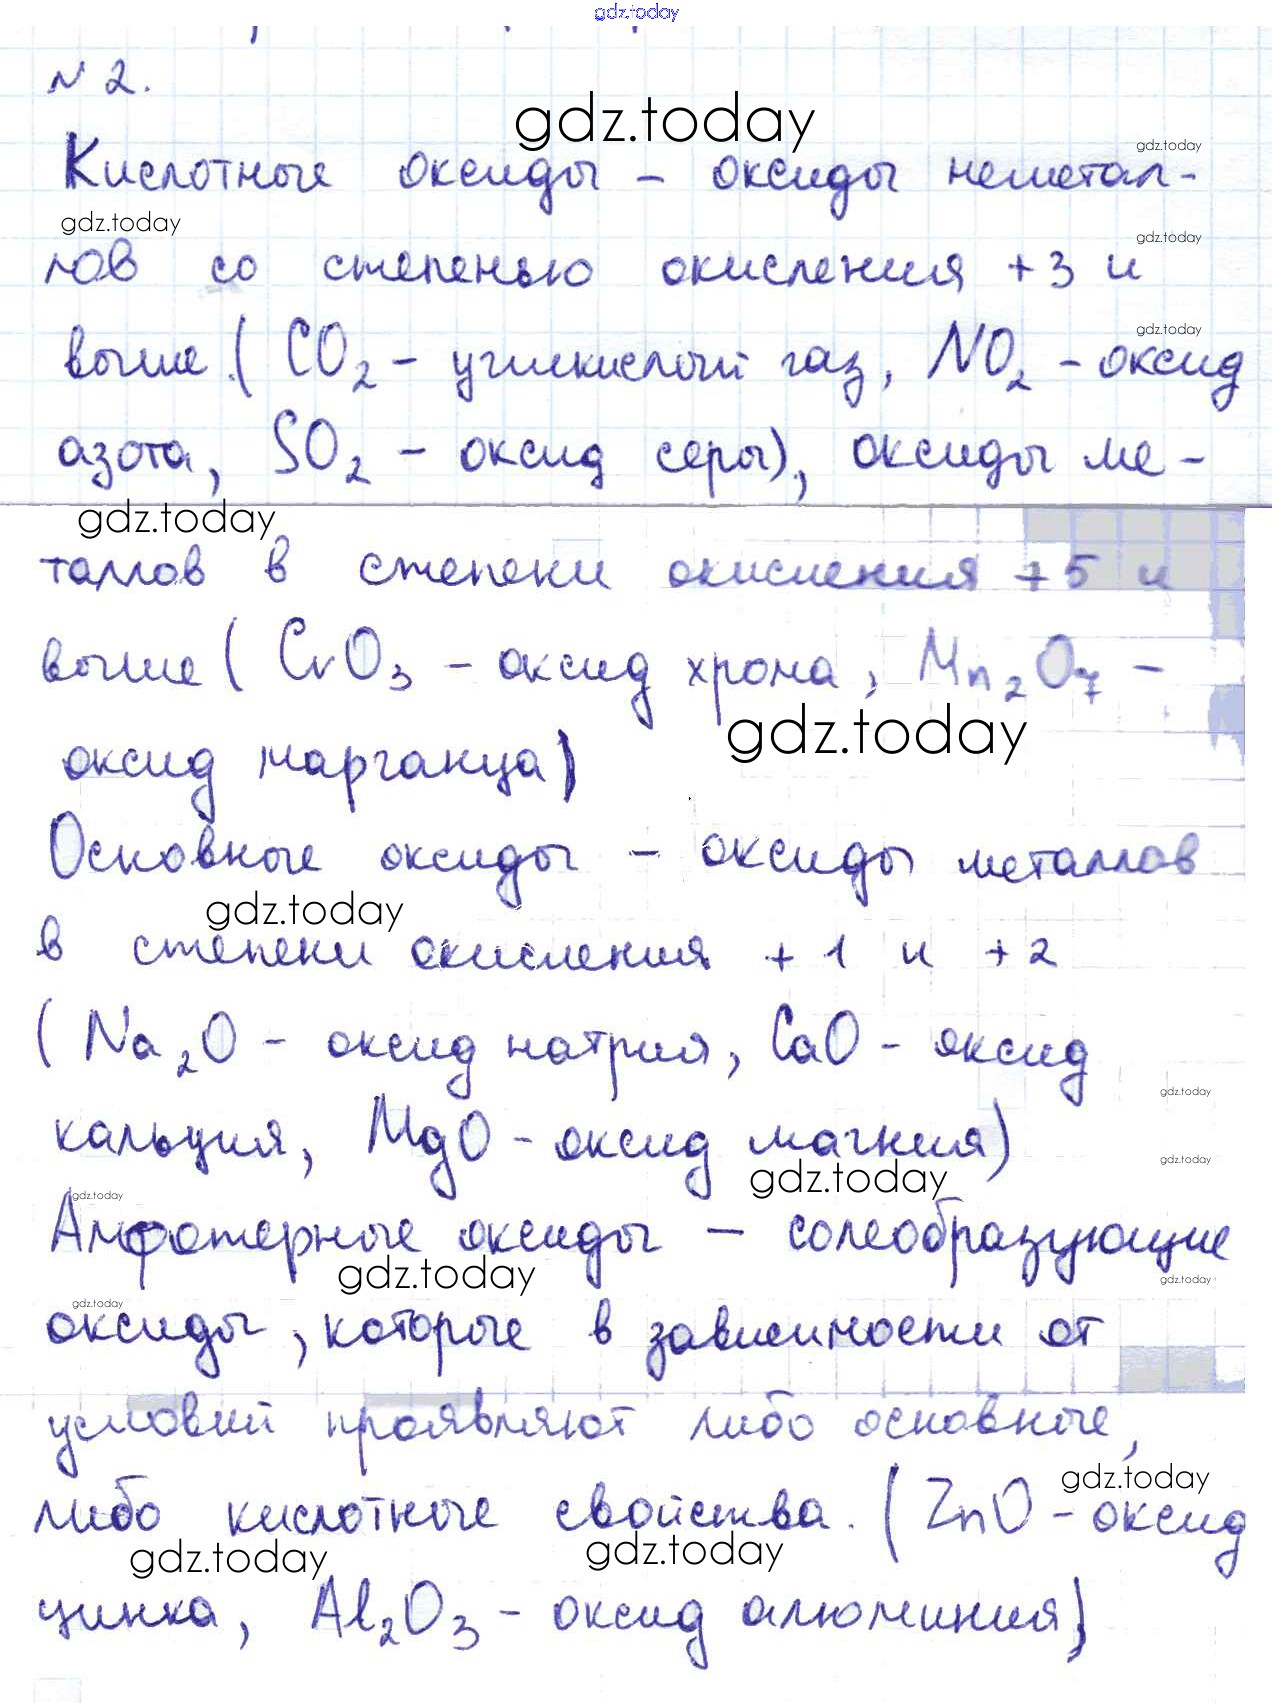 gdz.today
№ 2.
gdz.today
Кислотные оксиды – оксиды неметал-
gdz.today
gdz.today
лов со степенью окисления +3 и
gdz.today
выше (CO2 – углекислый газ, NO2 – оксид
gdz.today
азота, SO2 – оксид серы), оксиды ме-
gdz.today
таллов в степени окисления +5 и
выше (CrO3 – оксид хрома, Mn2O7 –
gdz.today
оксид марганца)
Основные оксиды – оксиды металлов
gdz.today
в степени окисления +1 и +2
(Na2O – оксид натрия, CaO – оксид
gdz.today
кальция, MgO – оксид магния)
gdz.today
gdz.today
gdz.today
Амфотерные оксиды – солеобразующие
gdz.today
gdz.today
gdz.today
оксиды, которые в зависимости от
условий проявляют либо основные,
gdz.today
либо кислотные свойства. (ZnO – оксид
gdz.today
gdz.today
цинка, Al2O3 – оксид алюминия)